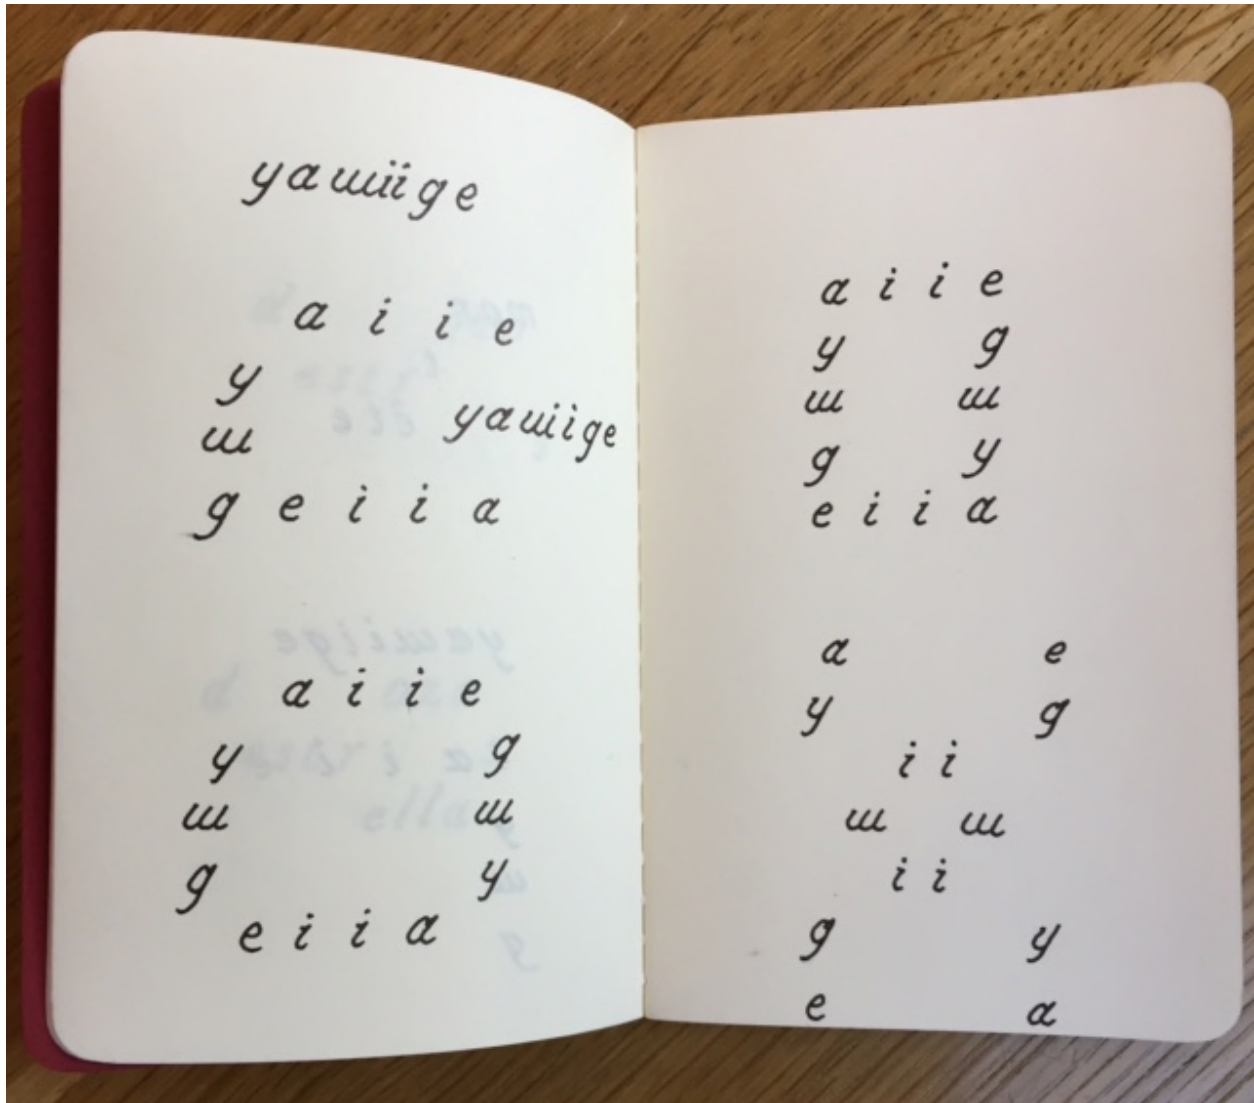 yaшiige
a i i e
y
yaшiige
ш
g e i i a
a i i e
y g
ш ш
g y
e i i a
a i i e
y g
ш ш
g y
e i i a
a e
y g
i i
ш ш
i i
g y
e a